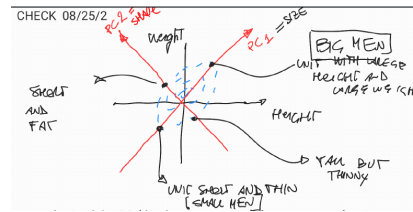 CHECK 08/25/2
PC2 = SHAPE
weight
PC1 = SIZE
BIG MEN
UNIT WITH LARGE
HEIGHT AND
LARGE WEIGH
SHORT
AND
FAT
HEIGHT
TALL BUT
THINNY
UNIT SHORT AND THIN
[SMALL MEN]